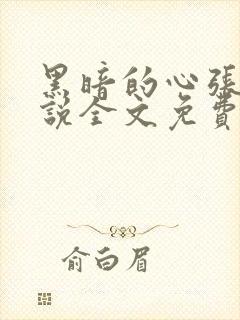 黑暗的心張
說全文免費
俞白眉